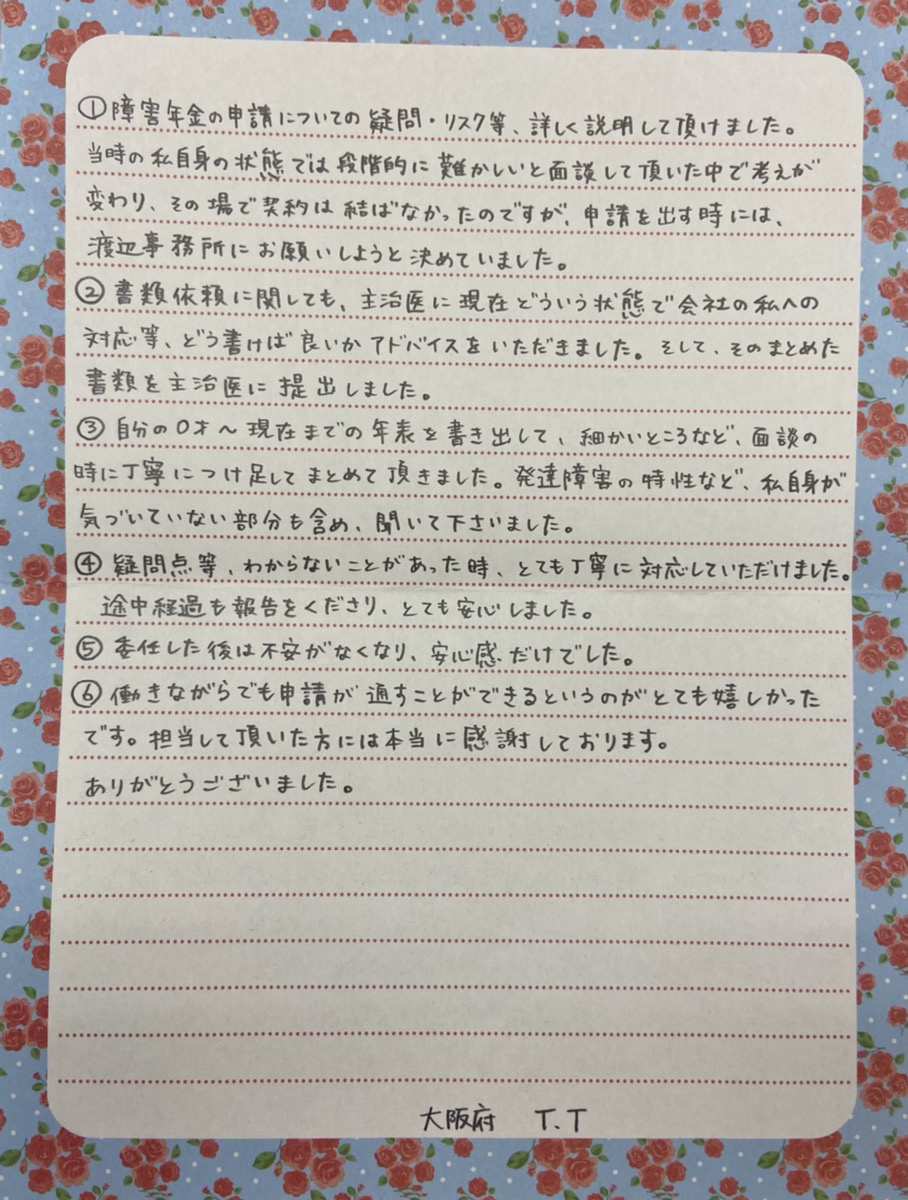 ①障害年金の申請についての疑問・リスク等、詳しく説明して頂けました。
当時の私自身の状態では段階的に難かしいと面談して頂いた中で考えが
変わり、その場で契約は結ばなかったのですが、申請を出す時には、
渡辺事務所にお願いしようと決めていました。
②書類依頼に関しても、主治医に現在どういう状態で会社の私への
対応等、どう書けば良いかアドバイスをいただきました。そして、そのまとめた
書類を主治医に提出しました。
③自分の0才～現在までの年表を書き出して、細かいところなど、面談の
時に丁寧につけ足してまとめて頂きました。発達障害の特性など、私自身が
気づいていない部分も含め、聞いて下さいました。
④疑問点等、わからないことがあった時、とても丁寧に対応していただけました。
途中経過も報告をくださり、とても安心しました。
⑤委任した後は不安がなくなり、安心感だけでした。
⑥働きながらでも申請が通すことができるというのがとても嬉しかった
です。担当して頂いた方には本当に感謝しております。
ありがとうございました。
大阪府 T.T